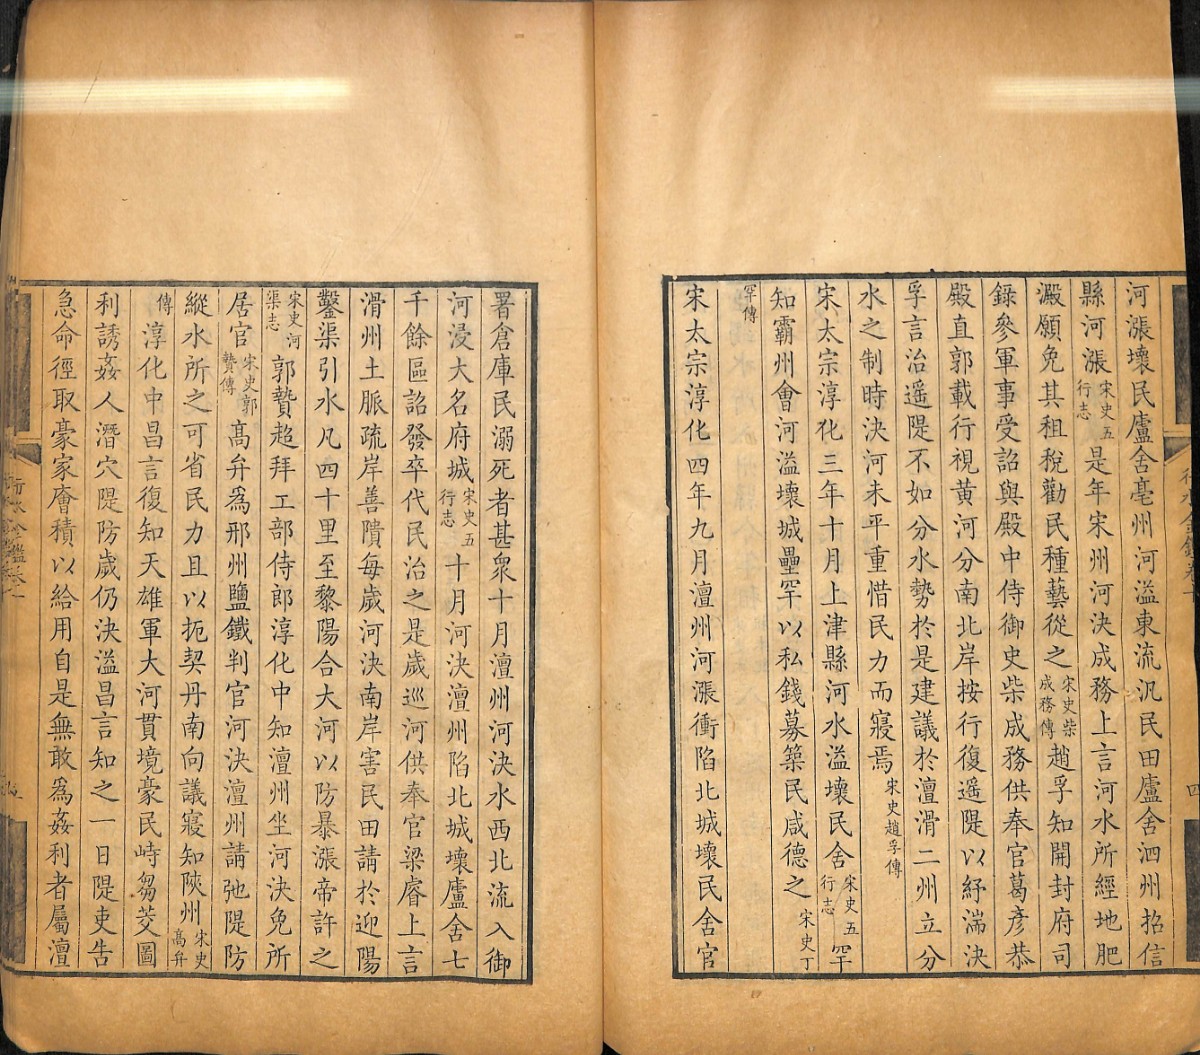 河漲壞民廬舍亳州河溢東流汎民田廬舍泗州招信
縣河漲宋史五行志是年宋州河決成務上言河水所經地肥
澱願免其租稅勸民種藝從之宋史柴成務傳趙孚知開封府司
錄參軍事受詔與殿中侍御史柴成務供奉官葛彥恭
殿直郭載行視黃河分南北岸按行復遥隄以紓湍決
孚言治遥隄不如分水勢於是建議於澶滑二州立分
水之制時決河未平重惜民力而寢焉宋史趙孚傳
宋太宗淳化三年十月上津縣河水溢壞民舍宋史五行志罕
知霸州會河溢壞城壘罕以私錢募築民咸德之宋史丁
罕傳
宋太宗淳化四年九月澶州河漲衝陷北城壞民舍官
署倉庫民溺死者甚衆十月澶州河決水西北流入御
河浸大名府城宋史五行志十月河決澶州陷北城壞廬舍七
千餘區詔發卒代民治之是歲巡河供奉官梁睿上言
滑州土脈疏岸善隤每歲河決南岸害民田請於迎陽
鑿渠引水凡四十里至黎陽合大河以防暴漲帝許之
宋史河渠志郭贄超拜工部侍郎淳化中知澶州坐河決免所
居官宋史郭贄傳高弁爲邢州鹽鐵判官河決澶州請弛隄防
縱水所之可省民力且以扼契丹南向議寢知陝州宋史高弁
傳淳化中昌言復知天雄軍大河貫境豪民峙芻茭圖
利誘姦人潛穴隄防歲仍決溢昌言知之一日隄吏告
急命徑取豪家廥積以給用自是無敢爲姦利者屬澶
行水金鑑卷十
四